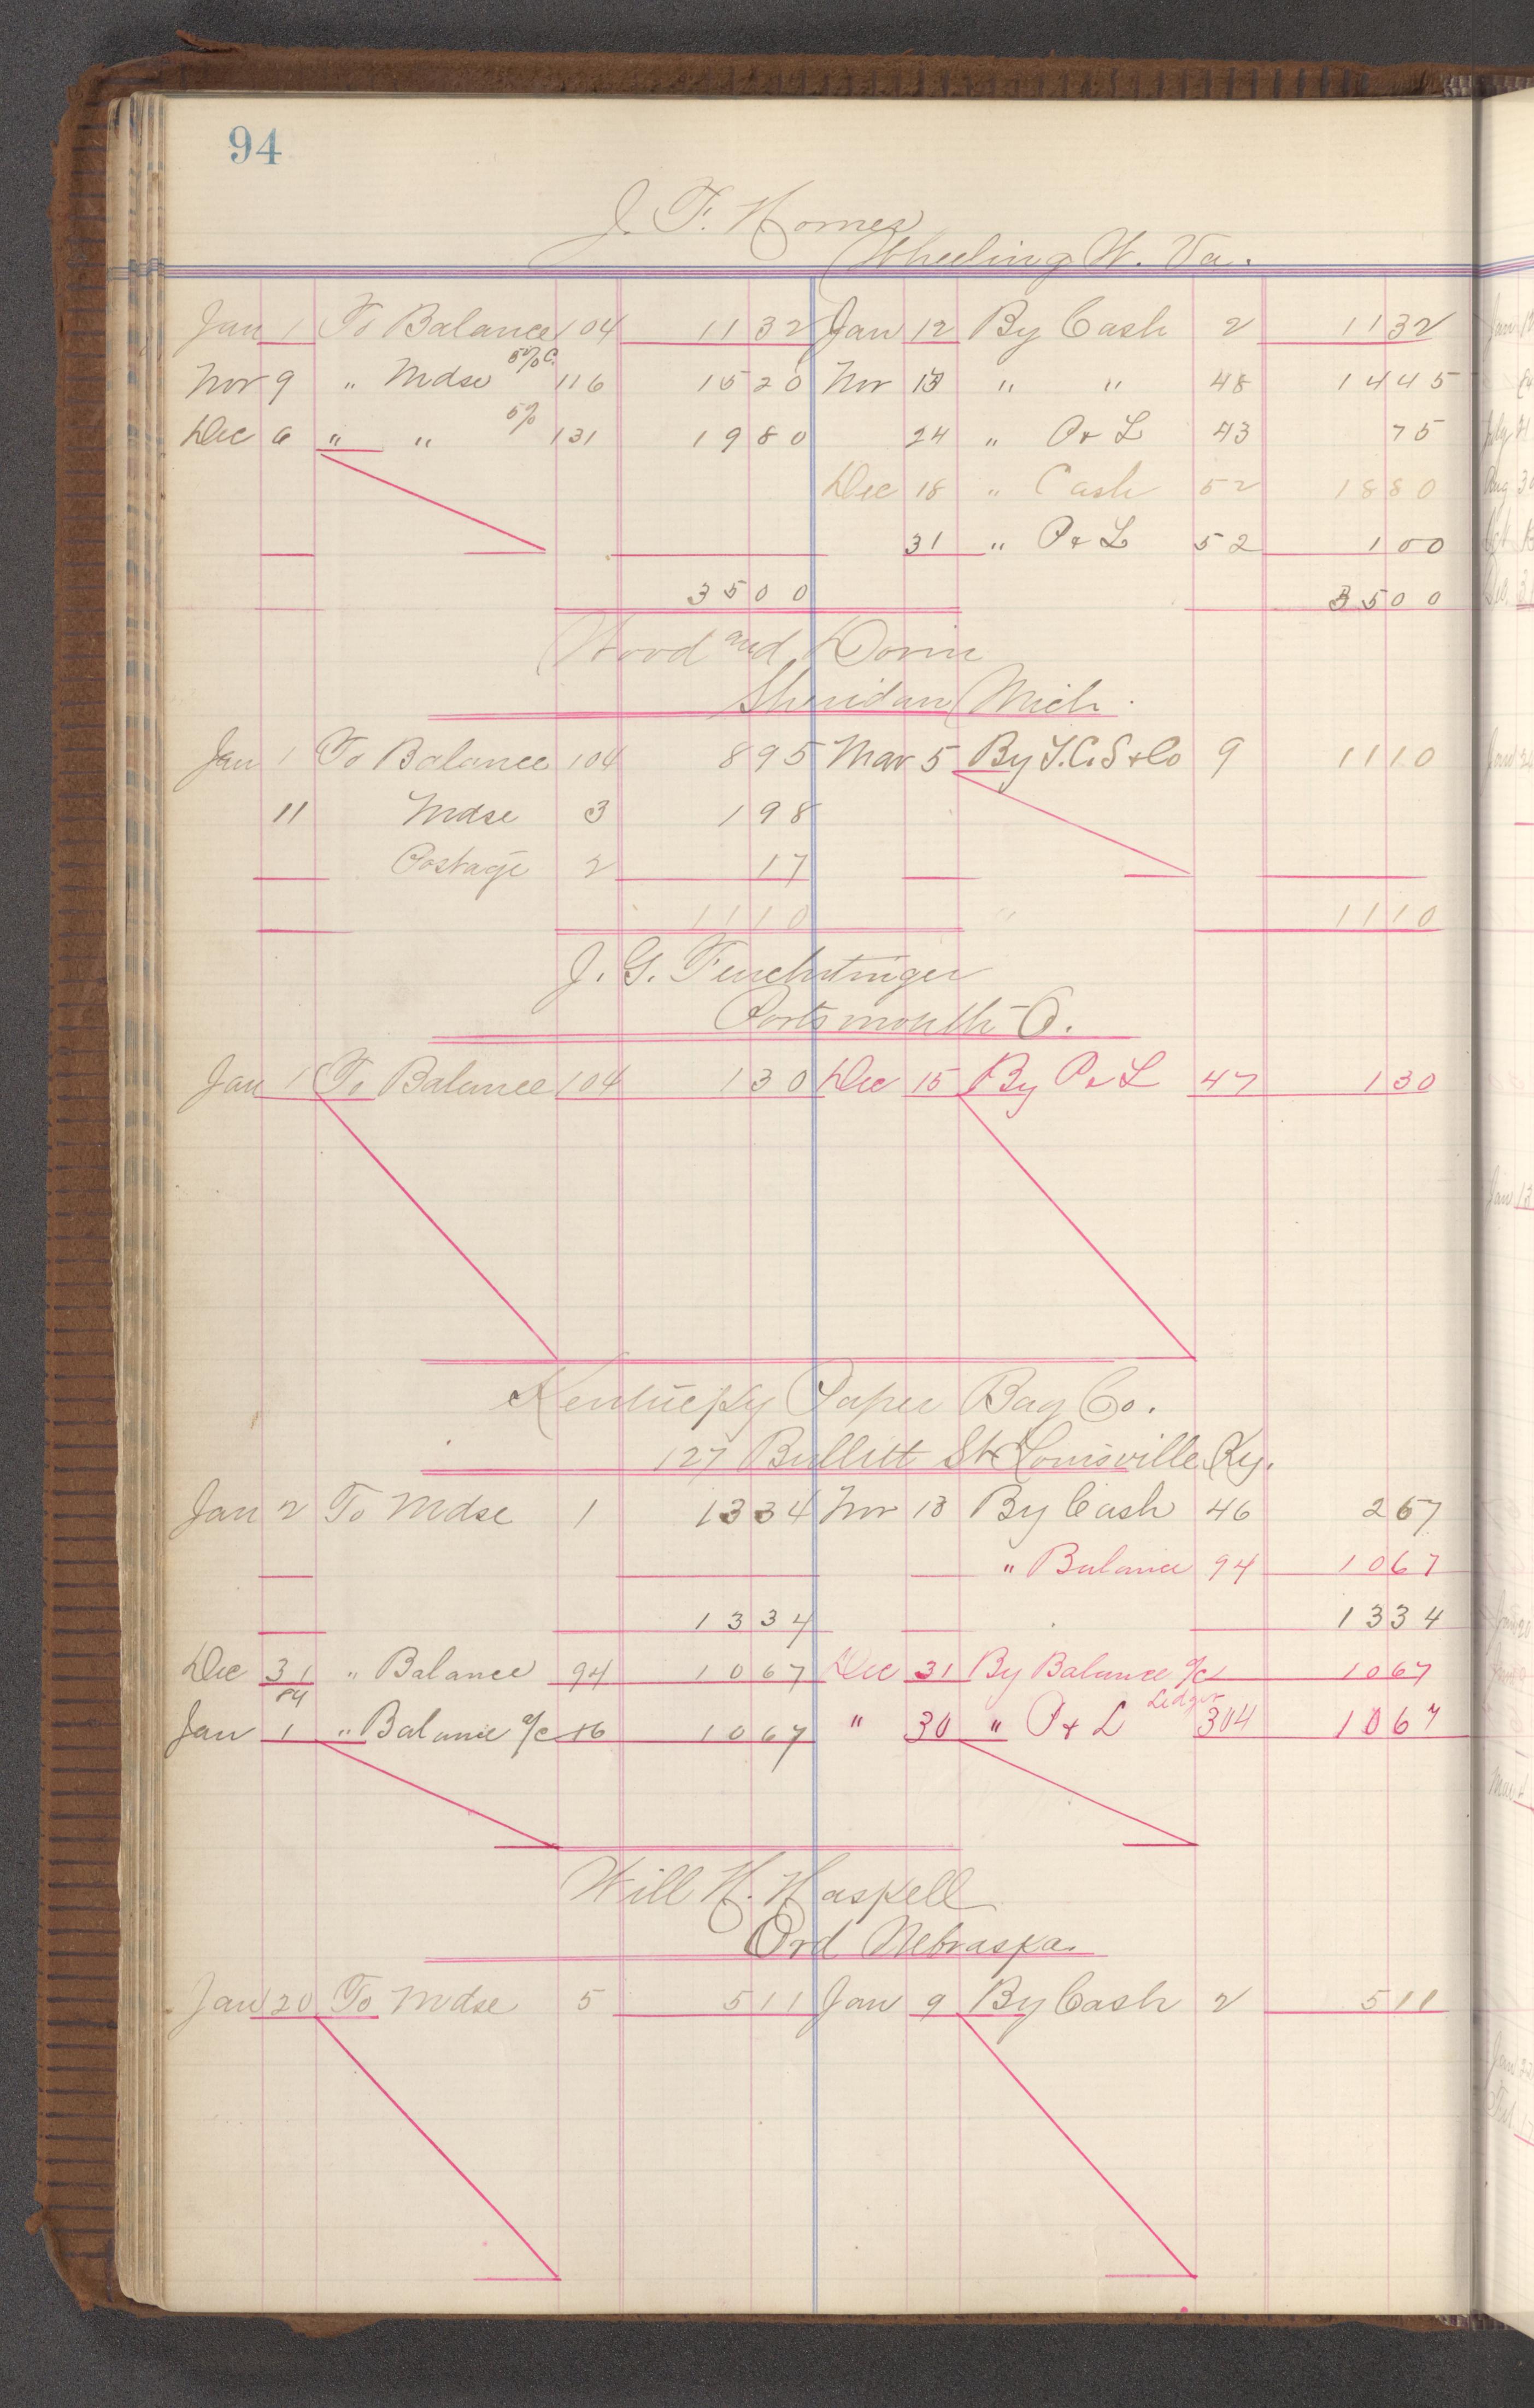 94
J. F. Horner
Wheeling W. Va.
Jan 1 To Balance 104 11 32 Jan 12 By Cash 2 11 32
Nov 9 " Mdse 5% C. 116 15 20 Nov 13 " " 48 14 45
Dec 6 " " 5% 131 19 80 24 " P & L 43 75
Dec 18 " Cash 52 18 80
31 " P & L 52 1 00
35 00 35 00
Wood and Dorin
Sheridan Mich.
Jan 1 To Balance 104 8 95 Mar 5 By T.C.S & Co 9 11 10
11 Mdse 3 1 98
Postage 2 17
11 10 " 11 10
J. G. Feuchtinger
Portsmouth O.
Jan 1 To Balance 104 1 30 Dec 15 By P & L 47 1 30
Kentucky Paper Bag Co.
127 Bullitt St Louisville Ky.
Jan 2 To Mdse 1 13 34 Nov 13 By Cash 46 2 67
" Balance 94 10 67
13 34 13 34
Dec 31 " Balance 94 10 67 Dec 31 By Balance a/c 10 67
84
Jan 1 " Balance a/c 16 10 67 " 30 " P & L Ledger 304 10 67
Will H. Haskell
Ord Nebraska.
Jan 20 To Mdse 5 5 11 Jan 9 By Cash 2 5 11